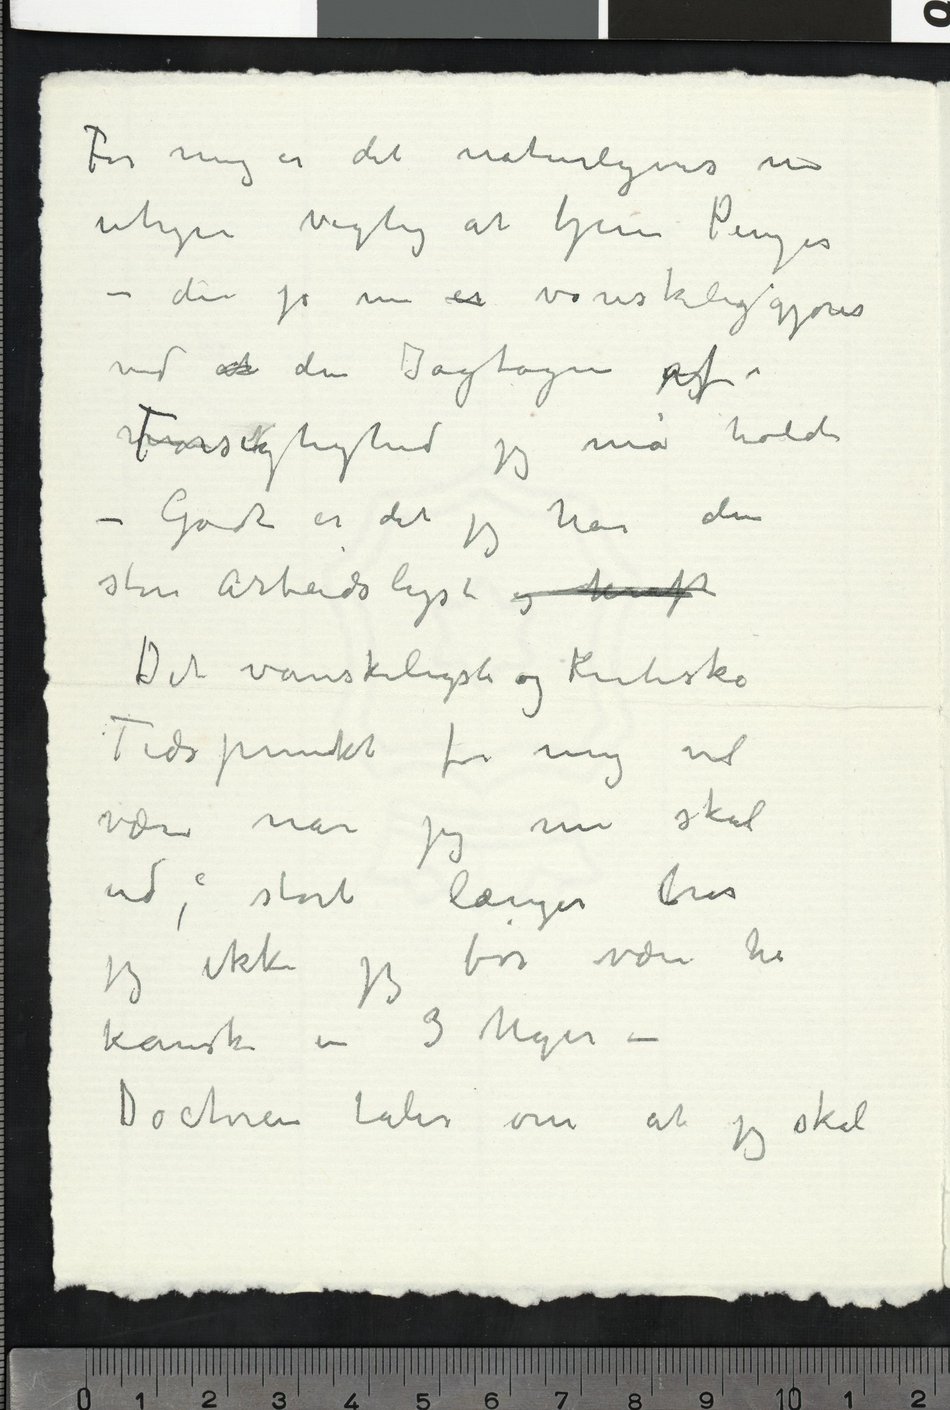 For mig er det naturligvis nu
uhyre vigtig at tjene Penge
– der jo nu er vanskeliggjøres
ved at den Iagtagen af
Forsigtighed jeg må holde
– Godt er det jeg har den
store Arbeidslyst og kraft
Det vanskeligste og Kritiske
Tidspunkt for mig vil
være når jeg nu skal
ud, stort længer tror
jeg ikke jeg bør være her
kanske en 3 Uger –
Doctoren taler om at jeg skal